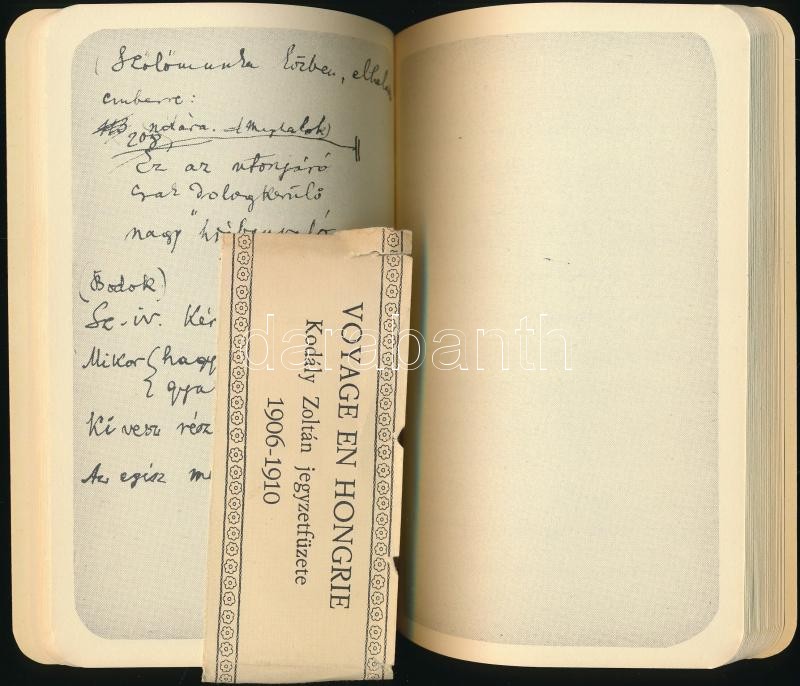 (Szőlőmunka közben, elhalad
emberre:
nótára. (Megtalok)
203
Ez az utonjáró
csak dologkerülő
nagy
(Bodok)
Sz-iv. Kér
Mikor { hagy
{ gya
Ki vesz rész
Az egisz m
VOYAGE EN HONGRIE
Kodály Zoltán jegyzetfüzete
1906-1910
darabanth